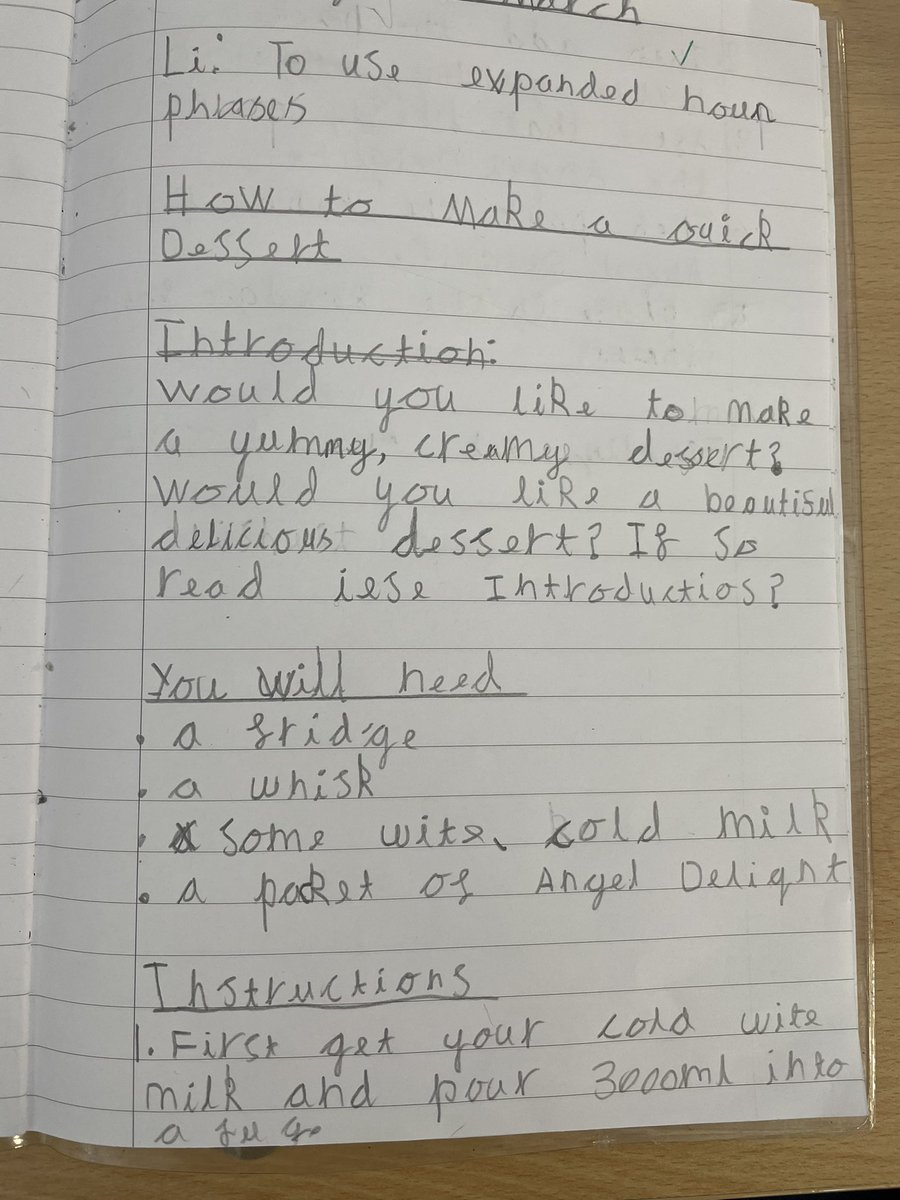 March
Li: To use expanded noun
phrases
How to Make a quick
Dessert
Introduction:
Would you like to make
a yummy, creamy dessert?
Would you like a beautiful
delicious dessert? If so
read iese Introductios?
You will need
• a fridge
• a whisk
• some wite, cold milk
• a packet of Angel Delight
Instructions
1. First get your cold wite
milk and pour 3000ml into
a jug.